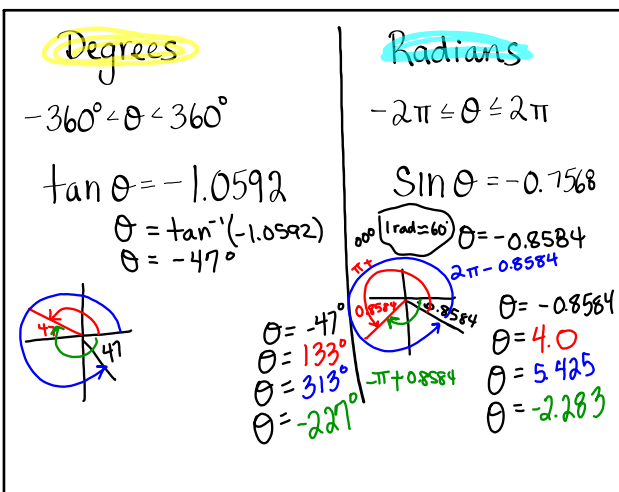 Degrees
-360° < θ < 360°
tan θ = -1.0592
θ = tan⁻¹(-1.0592)
θ = -47°
47
47
θ = -47°
θ = 133°
θ = 313°
θ = -227°
Radians
-2π ≤ θ ≤ 2π
sin θ = -0.7568
1 rad ≈ 60°
θ = -0.8584
π+
2π - 0.8584
0.8584
0.8584
-π + 0.8584
θ = -0.8584
θ = 4.0
θ = 5.425
θ = -2.283